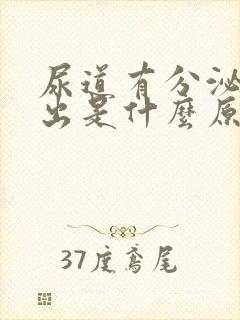 尿道有分泌
出是什麼原
37度鳶尾